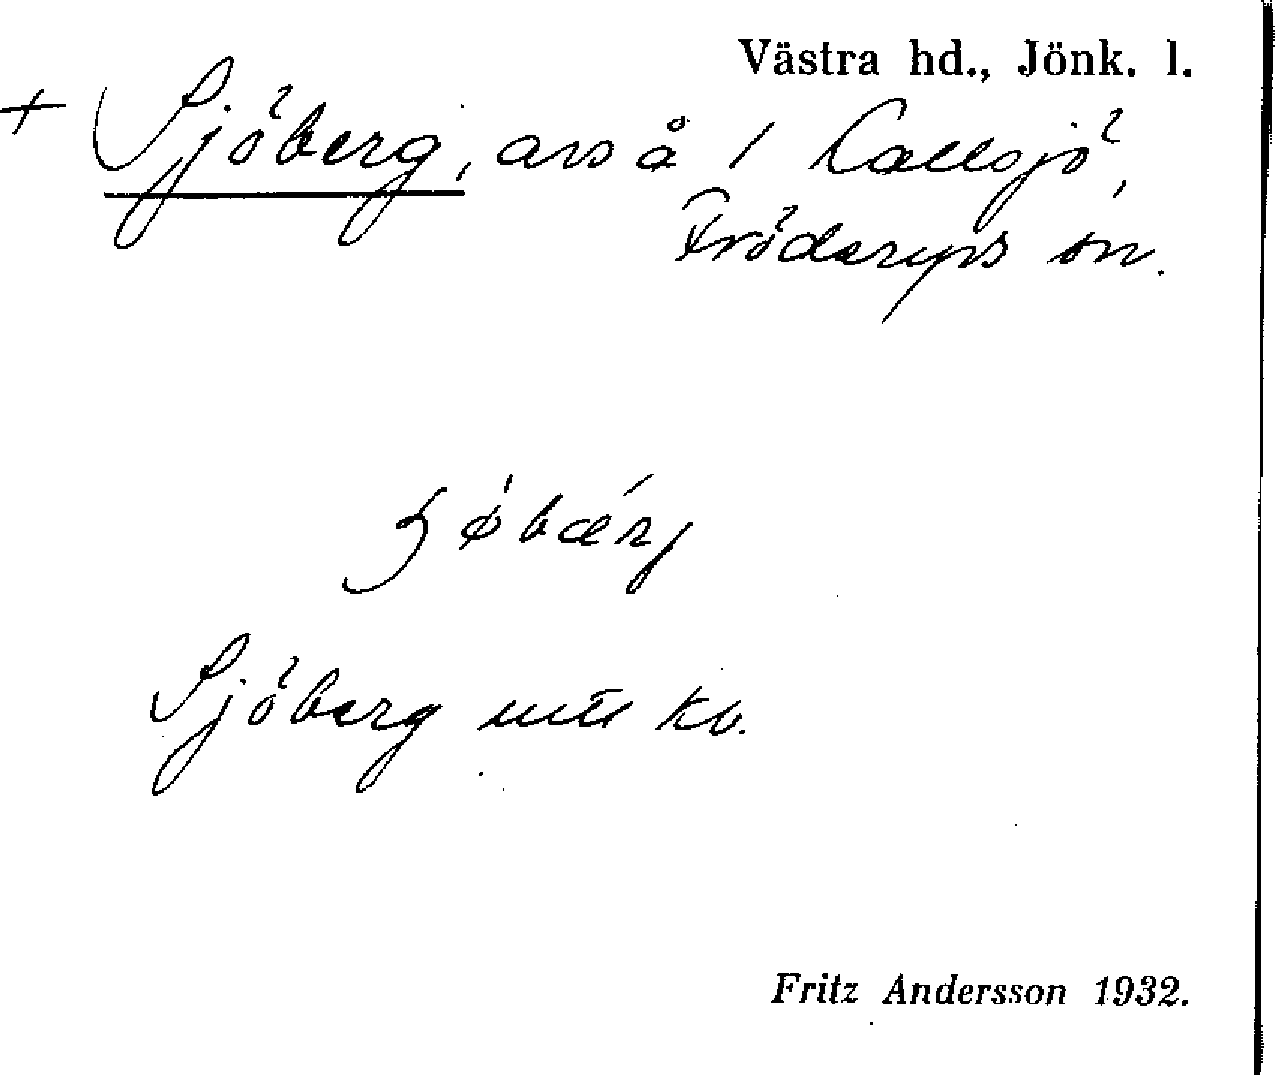 Västra hd., Jönk. l.
+ Sjöberg, avs å 1 Callsjö,
Fröderyds sn.
Sjöberg utu kb.
Fritz Andersson 1932.